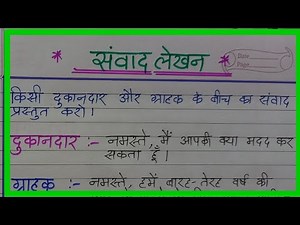 * संवाद लेखन *
किसी दुकानदार और ग्राहक के बीच का संवाद
प्रस्तुत करो।
दुकानदार :- नमस्ते, मैं आपकी क्या मदद कर
सकता हूँ।
ग्राहक :- नमस्ते, हमें बारह-तेरह वर्ष की